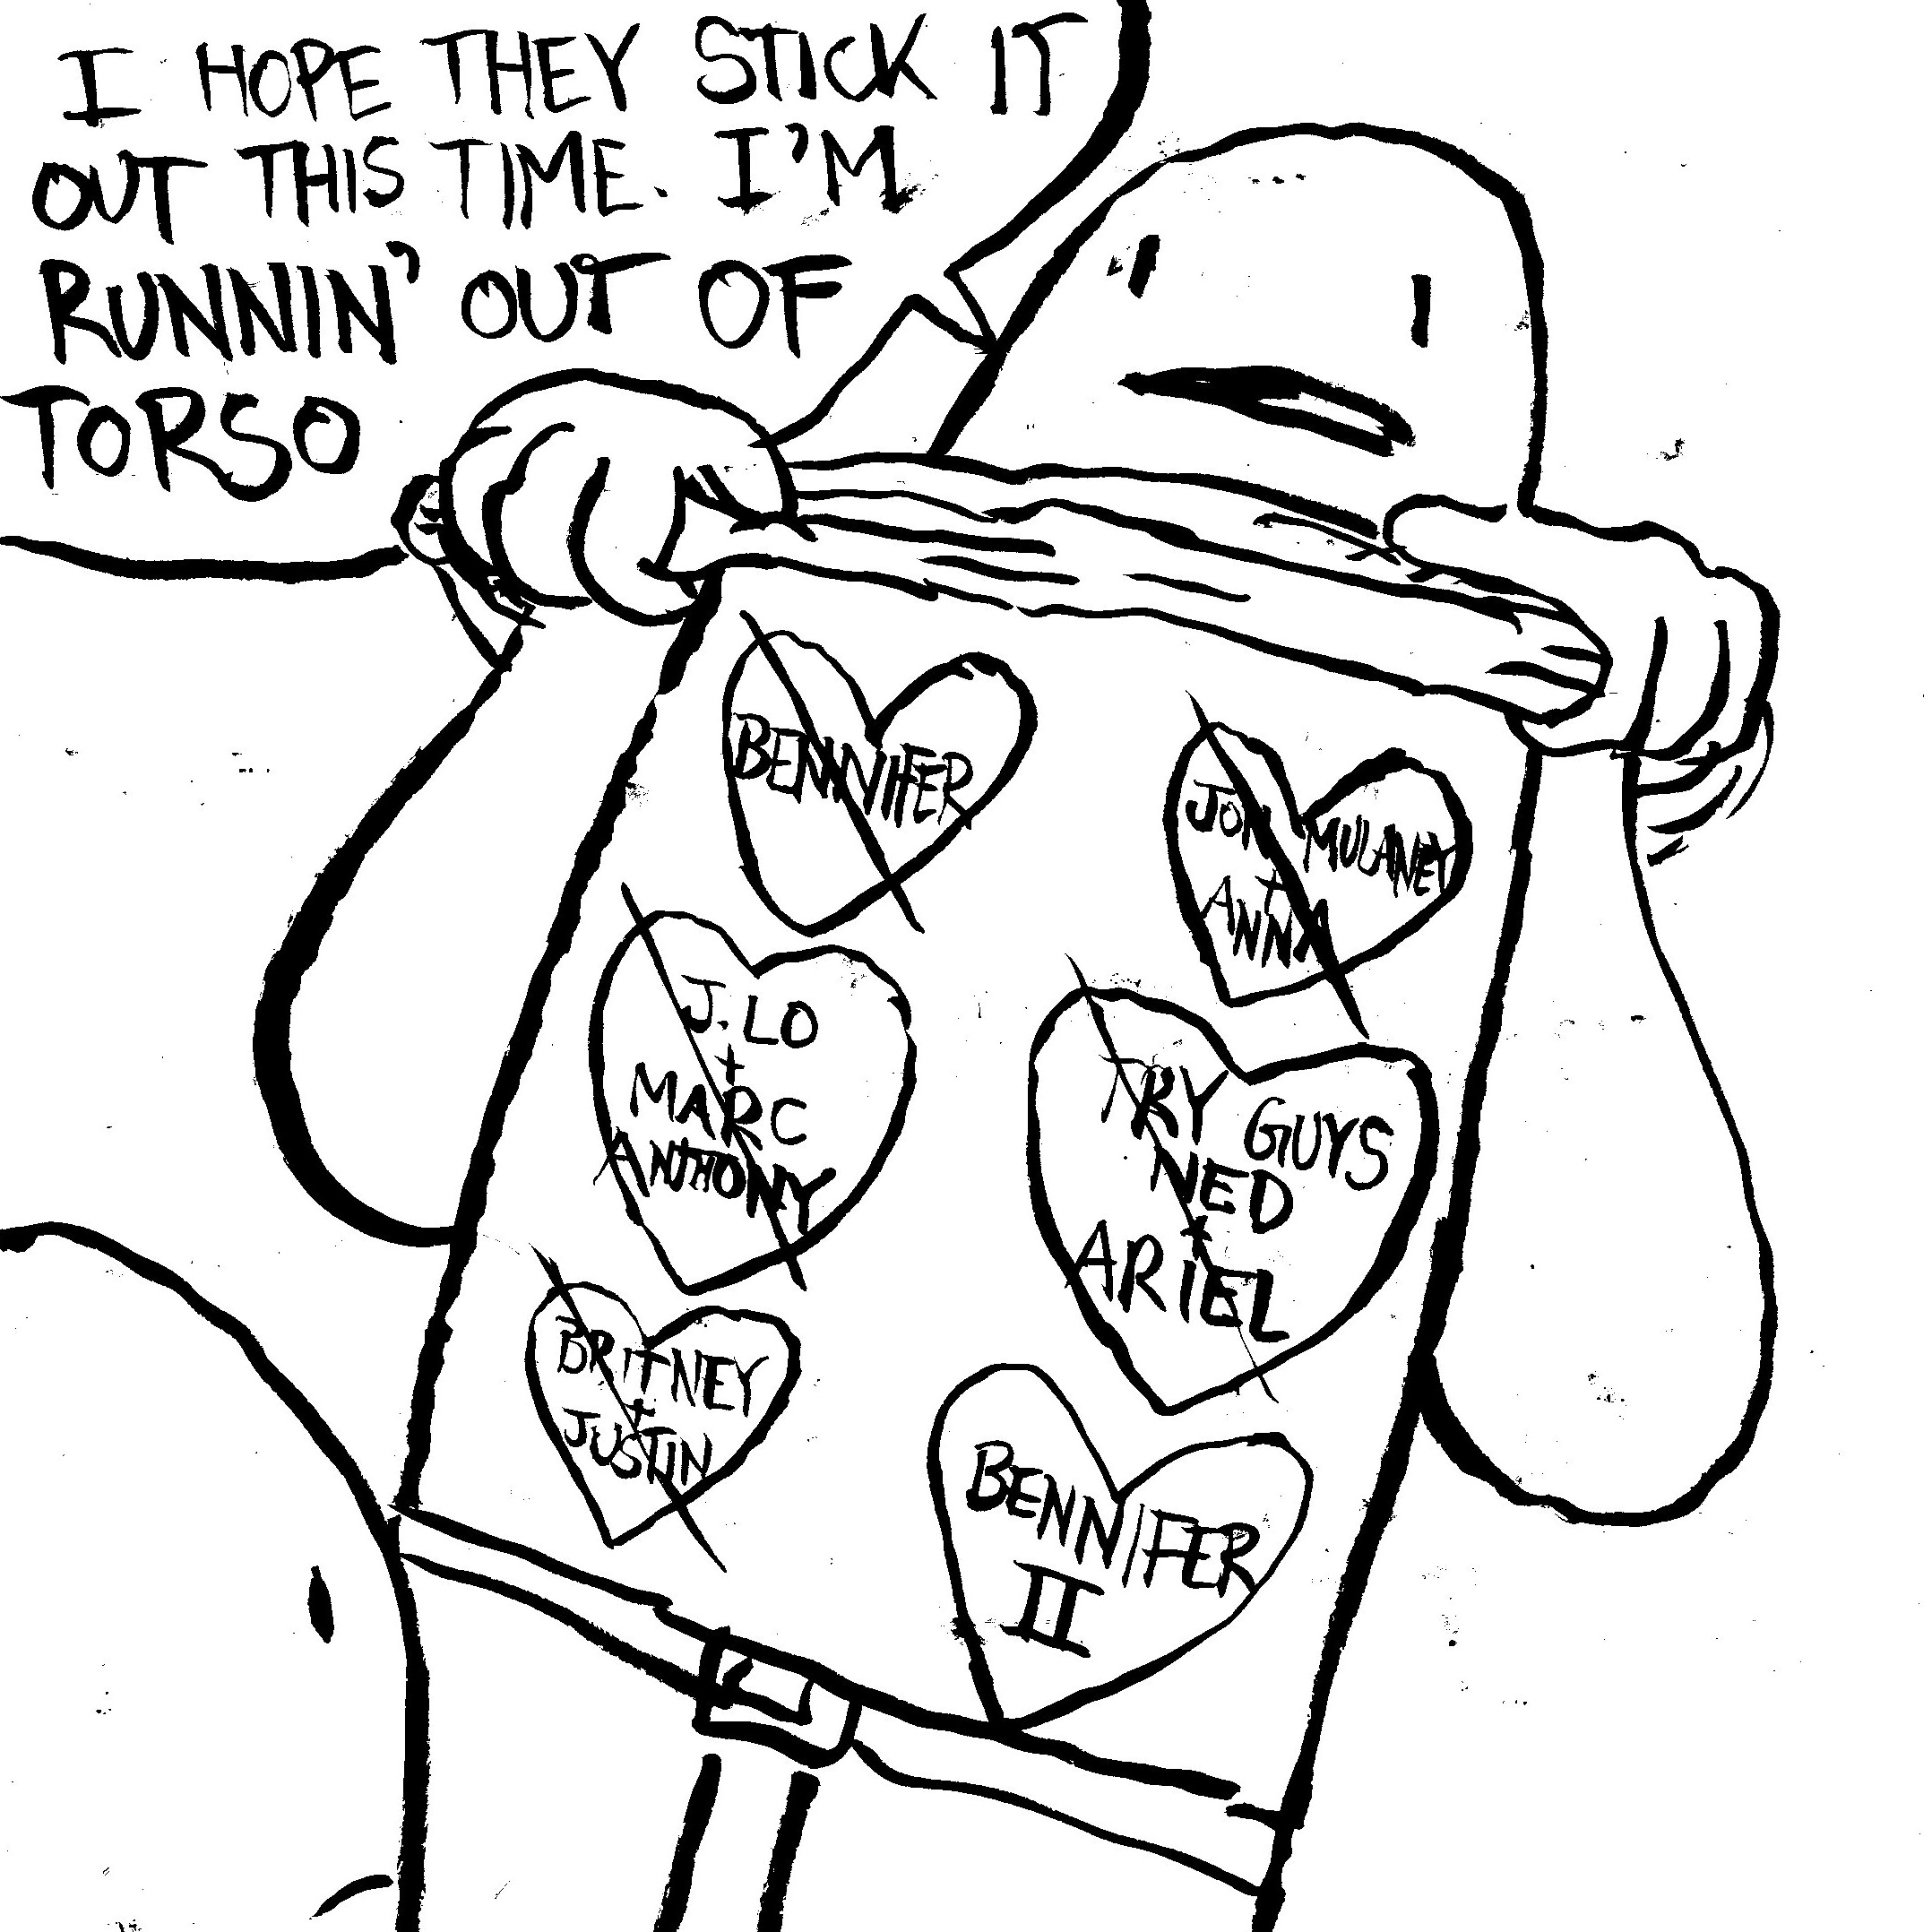 I HOPE THEY STICK IT
OUT THIS TIME. I'M
RUNNIN' OUT OF
TORSO
BENNIFER
JON MULANEY
+
ANNA
J.LO
+
MARC
ANTHONY
TRY GUYS
NED
+
ARIEL
BRITNEY
+
JUSTIN
BENNIFER
II